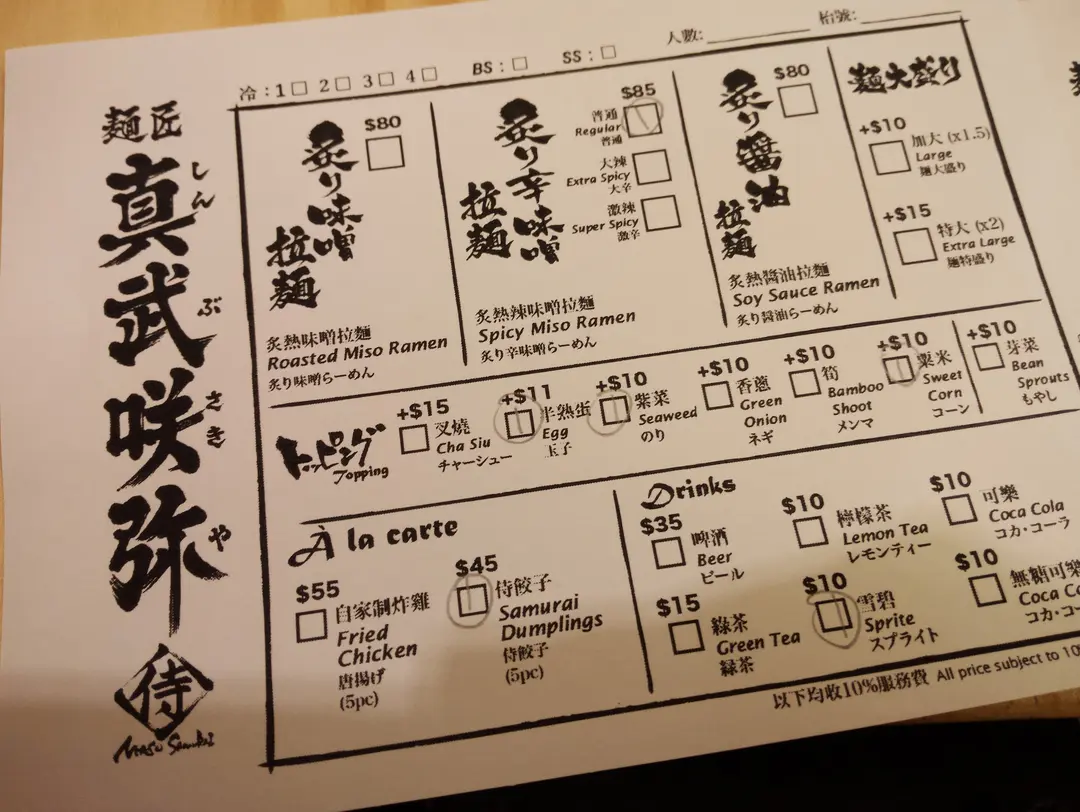 冷：1□ 2□ 3□ 4□ BS：□ SS：□ 人數：______ 枱號：______
麵匠
真武咲弥
しん
ぶ
さき
や
侍
$80
炙り味噌
拉麺
炙熱味噌拉麵
Roasted Miso Ramen
炙り味噌らーめん
$85
炙り辛味噌
拉麺
普通
Regular
普通
大辣
Extra Spicy
大辛
激辣
Super Spicy
激辛
炙熱辣味噌拉麵
Spicy Miso Ramen
炙り辛味噌らーめん
$80
炙り醤油
拉麺
炙熱醬油拉麵
Soy Sauce Ramen
炙り醤油らーめん
麺大盛り
+$10
加大 (x1.5)
Large
麺大盛り
+$15
特大 (x2)
Extra Large
麺特盛り
トッピング
Topping
+$15
叉燒
Cha Siu
チャーシュー
+$11
半熟蛋
Egg
玉子
+$10
紫菜
Seaweed
のり
+$10
香蔥
Green
Onion
ネギ
+$10
筍
Bamboo
Shoot
メンマ
+$10
粟米
Sweet
Corn
コーン
+$10
芽菜
Bean
Sprouts
もやし
À la carte
$55
自家制炸雞
Fried
Chicken
唐揚げ
(5pc)
$45
侍餃子
Samurai
Dumplings
侍餃子
(5pc)
Drinks
$35
啤酒
Beer
ビール
$10
檸檬茶
Lemon Tea
レモンティー
$10
可樂
Coca Cola
コカ・コーラ
$15
綠茶
Green Tea
緑茶
$10
雪碧
Sprite
スプライト
$10
無糖可樂
Coca Co
コカ・コー
以下均收10%服務費 All price subject to 10%